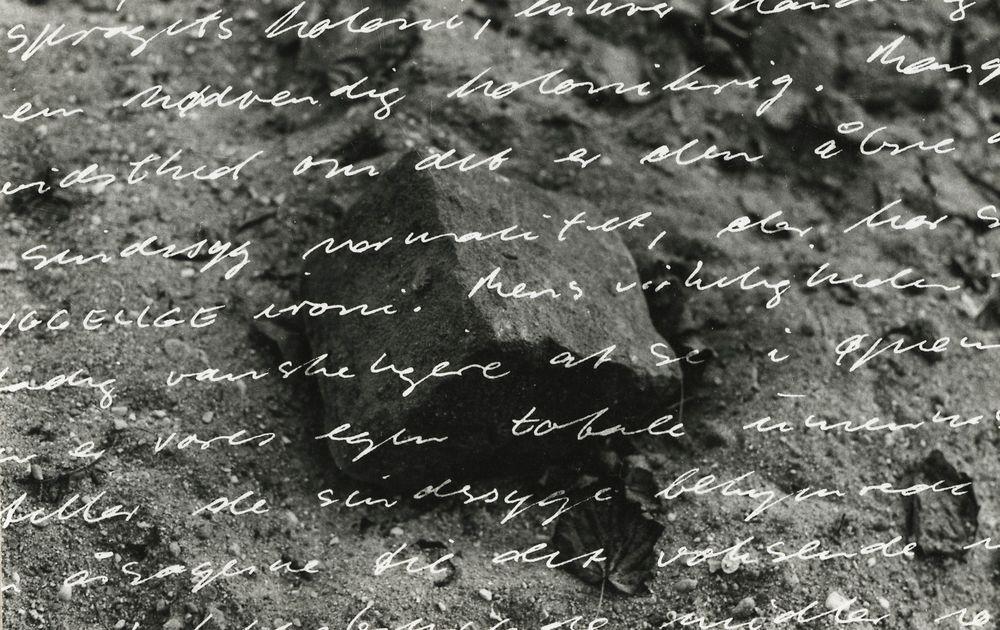 sprogets koloni, enhver
en nødvendig kolonikrig. Mang
vidsthed om det er den åbne
sindssyg normalitet, der har s
YGGELIGE ironi. Mens virkeligheden
tadig vanskeligere at se i øjnen
er vores egen totale umenn
teller de sindssyge bekymrede
årsagerne til det voksende
midler